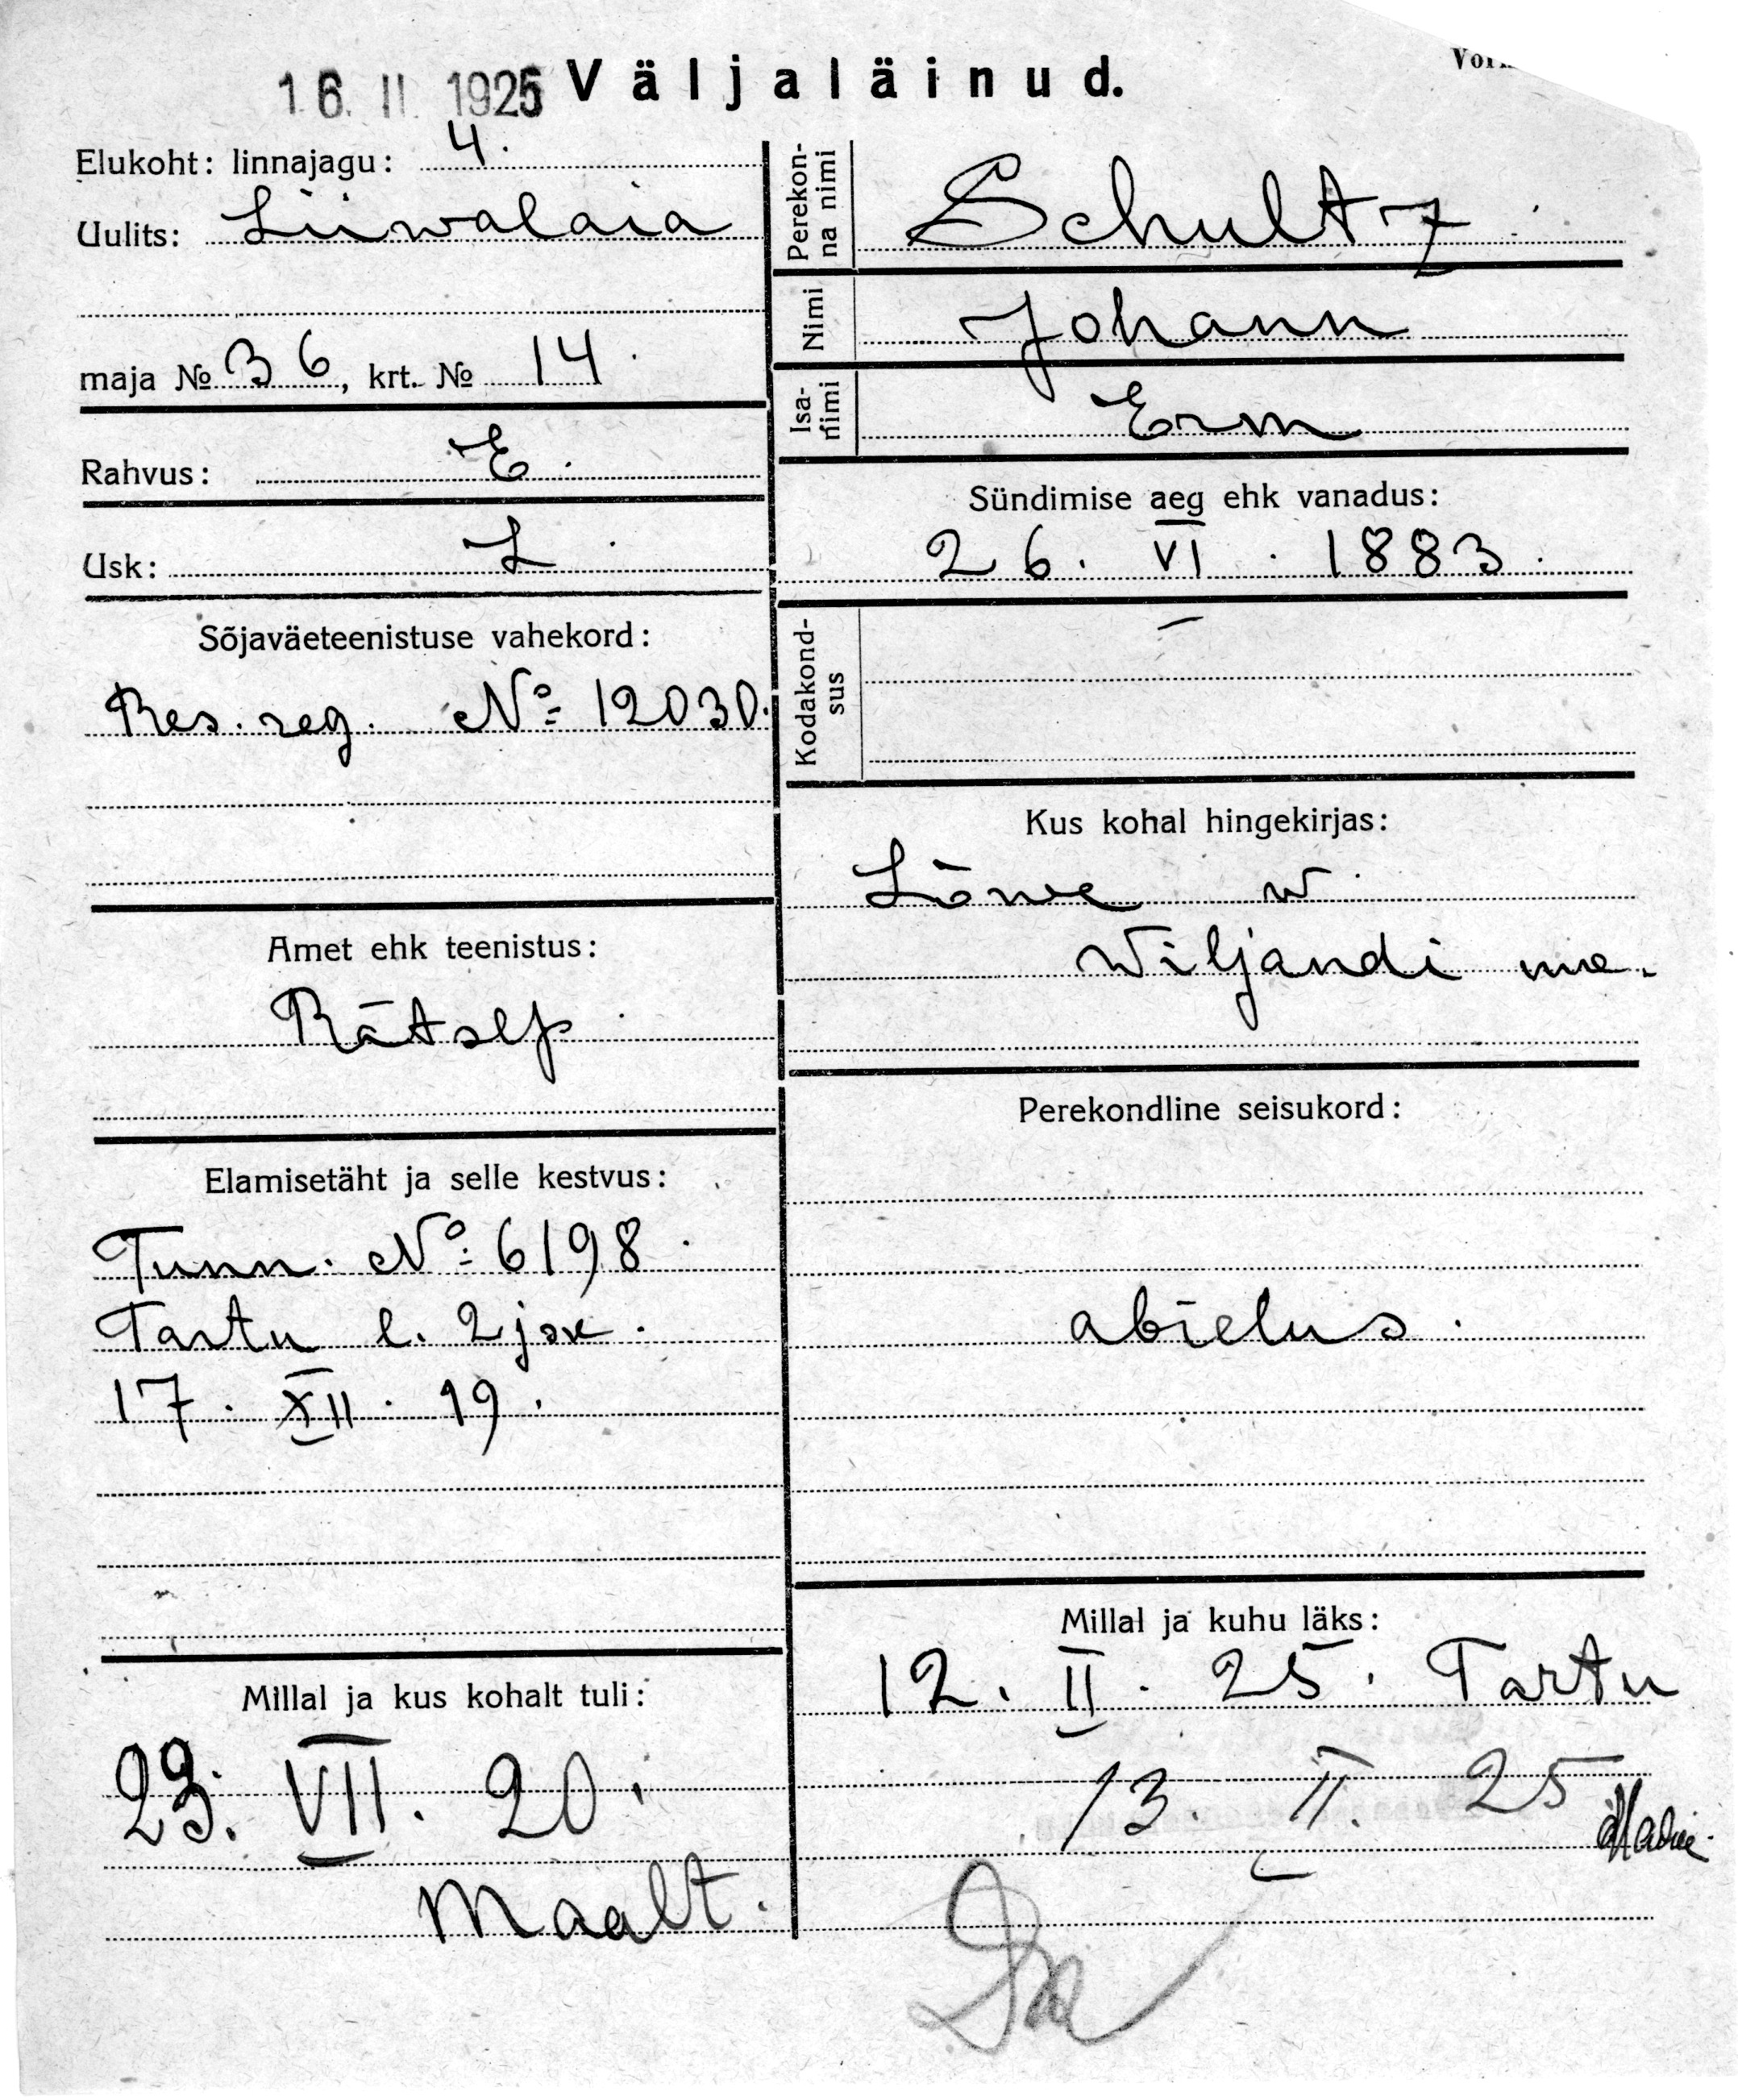 16. II 1925 Väljaläinud.
Elukoht: linnajagu: 4.
Uulits: Liiwalaia
maja № 36, krt. № 14.
Rahvus: E.
Usk: L.
Sõjaväeteenistuse vahekord:
Res. reg. № 12030.
Amet ehk teenistus:
Rätsep.
Elamisetäht ja selle kestvus:
Tunn. № 6198.
Tartu l. 2 jsk.
17. XII. 19.
Millal ja kus kohalt tuli:
23. VII. 20.
Maalt.
Perekon-
na nimi
Schultz
Nimi
Johann
Isa-
nimi
Erm
Sündimise aeg ehk vanadus:
26. VI. 1883.
Kodakond-
sus
—
Kus kohal hingekirjas:
Lõwe w.
Wiljandi ma.
Perekondline seisukord:
abielus.
Millal ja kuhu läks:
12. II. 25. Tartu
13. II. 25